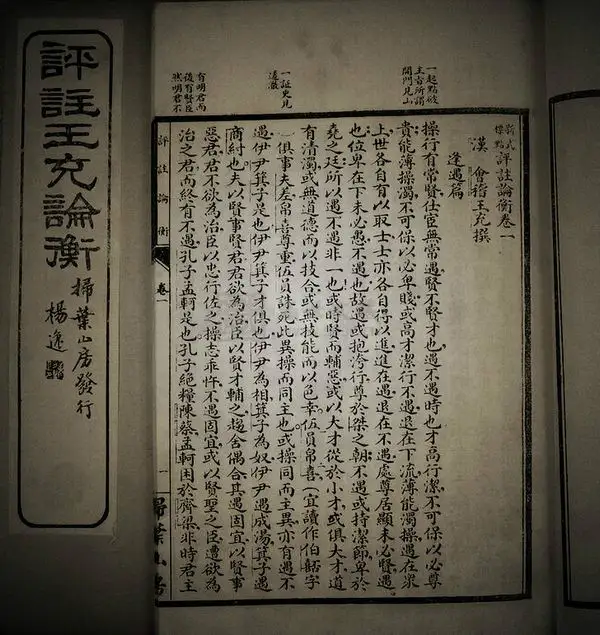 評註王充論衡
掃葉山房發行
楊逸
一起點破
主古所謂
開門見山
一証史見
遠徵
有明君而
後有賢臣
然明君不
新式標點 評註論衡卷一
漢 會稽王充撰
逢遇篇
操行有常賢仕宦無常遇賢不賢才也遇不遇時也才高行潔不可保以必尊
貴能薄操濁不可保以必卑賤或高才潔行不遇退在下流薄能濁操遇在眾
上世各自有以取士士亦各自得以進進在遇退在不遇處尊居顯未必賢遇
也位卑在下未必愚不遇也故遇或抱洿行尊於桀之朝不遇或持潔節卑於
堯之廷所以遇不遇非一也或時賢而輔惡或以大才從於小才或俱大才道
有清濁或無道德而以技合或無技能而以色幸伍員帛喜（宜讀作伯嚭字
）俱事夫差帛喜尊重伍員誅死此異操而同主也或操同而主異亦有遇不
遇伊尹箕子是也伊尹箕子才俱也伊尹為相箕子為奴伊尹遇成湯箕子遇
商紂也夫以賢事賢君君欲為治臣以賢才輔之趨舍偶合其遇固宜以賢事
惡君君不欲為治臣以忠行佐之操志乖忤不遇固宜或以賢聖之臣遭欲為
治之君而終有不遇孔子孟軻是也孔子絕糧陳蔡孟軻困於齊梁非時君主
評註論衡 卷一 一 掃葉山房